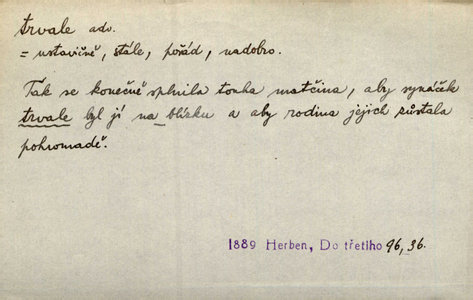 trvale adv.
= ustavičně, stále, pořád, nadobro.
Tak se konečně splnila touha matčina, aby synáček
trvale byl jí na blízku a aby rodina jejich zůstala
pohromadě.
1889 Herben, Do třetího 96, 36.